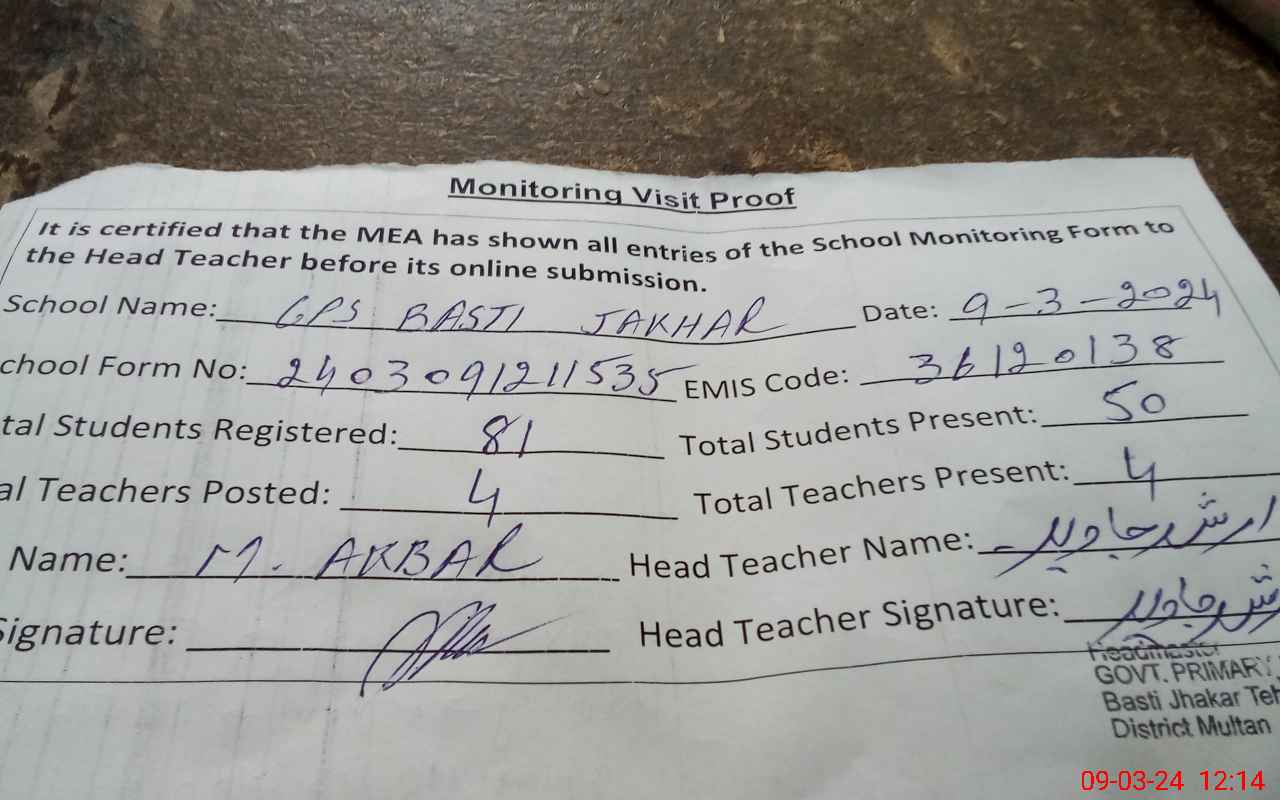 Monitoring Visit Proof
It is certified that the MEA has shown all entries of the School Monitoring Form to
the Head Teacher before its online submission.
School Name: GPS BASTI JAKHAR Date: 9-3-2024
chool Form No: 2403091211535 EMIS Code: 36120138
tal Students Registered: 81 Total Students Present: 50
al Teachers Posted: 4 Total Teachers Present: 4
Name: M. AKBAR Head Teacher Name: ارشد جاوید
Signature: Head Teacher Signature: جاوید
Headmaster
GOVT. PRIMARY
Basti Jhakar Teh
District Multan
09-03-24 12:14